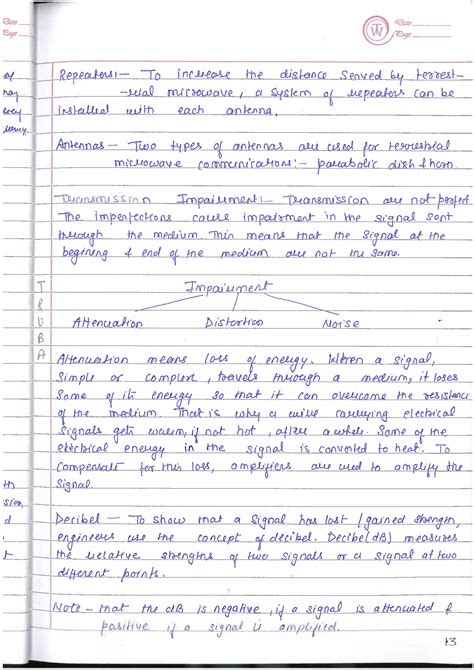 Date
Page
TW
Date
Page
Repeaters:- To increase the distance served by terrest-
-rial microwave, a system of repeaters can be
installed with each antenna.
Antennas - Two types of antennas are used for terrestrial
microwave communications:- parabolic dish & horn.
Transmission Impairment:- Transmission are not perfect.
The imperfections cause impairment in the signal sent
through the medium. This means that the signal at the
begining & end of the medium are not the same.
Impairment
Attenuation Distortion Noise
TRUBA
Attenuation means loss of energy. When a signal,
simple or complex, travels through a medium, it loses
some of its energy so that it can overcome the resistance
of the medium. That is why a wire carrying electrical
signals gets warm, if not hot, after a while. Some of the
electrical energy in the signal is converted to heat. To
compensate for this loss, amplifiers are used to amplify the
signal.
Decibel - To show that a signal has lost/gained strength,
engineers use the concept of decibel. Decibel(dB) measures
the relative strengths of two signals or a signal at two
different points.
Note - that the dB is negative, if a signal is attenuated &
positive if a signal is amplified.
13